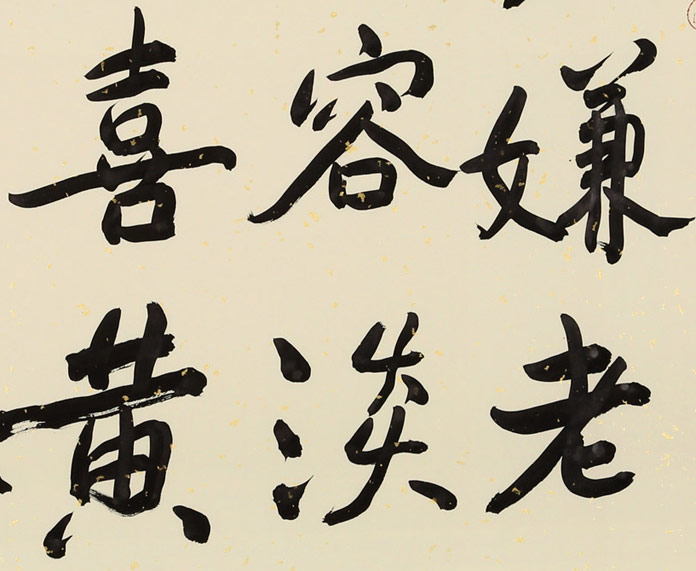 嫌老
容淡
喜黄